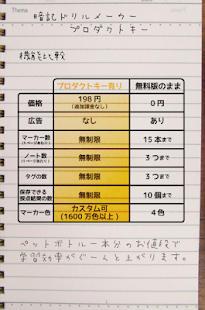 Thema
暗記ドリルメーカー
プロダクトキー
機能比較
プロダクトキー有り 無料版のまま
価格 198円 (追加課金なし) 0円
広告 なし あり
マーカー数 無制限 15本まで
ノート数 無制限 3つまで
タグの数 無制限 3つまで
保存できる
採点結果の数 無制限 10個まで
マーカー色 カスタム可
(1600万色以上) 4色
ペットボトル一本分のお値段で
学習効率がぐーんと上がります。